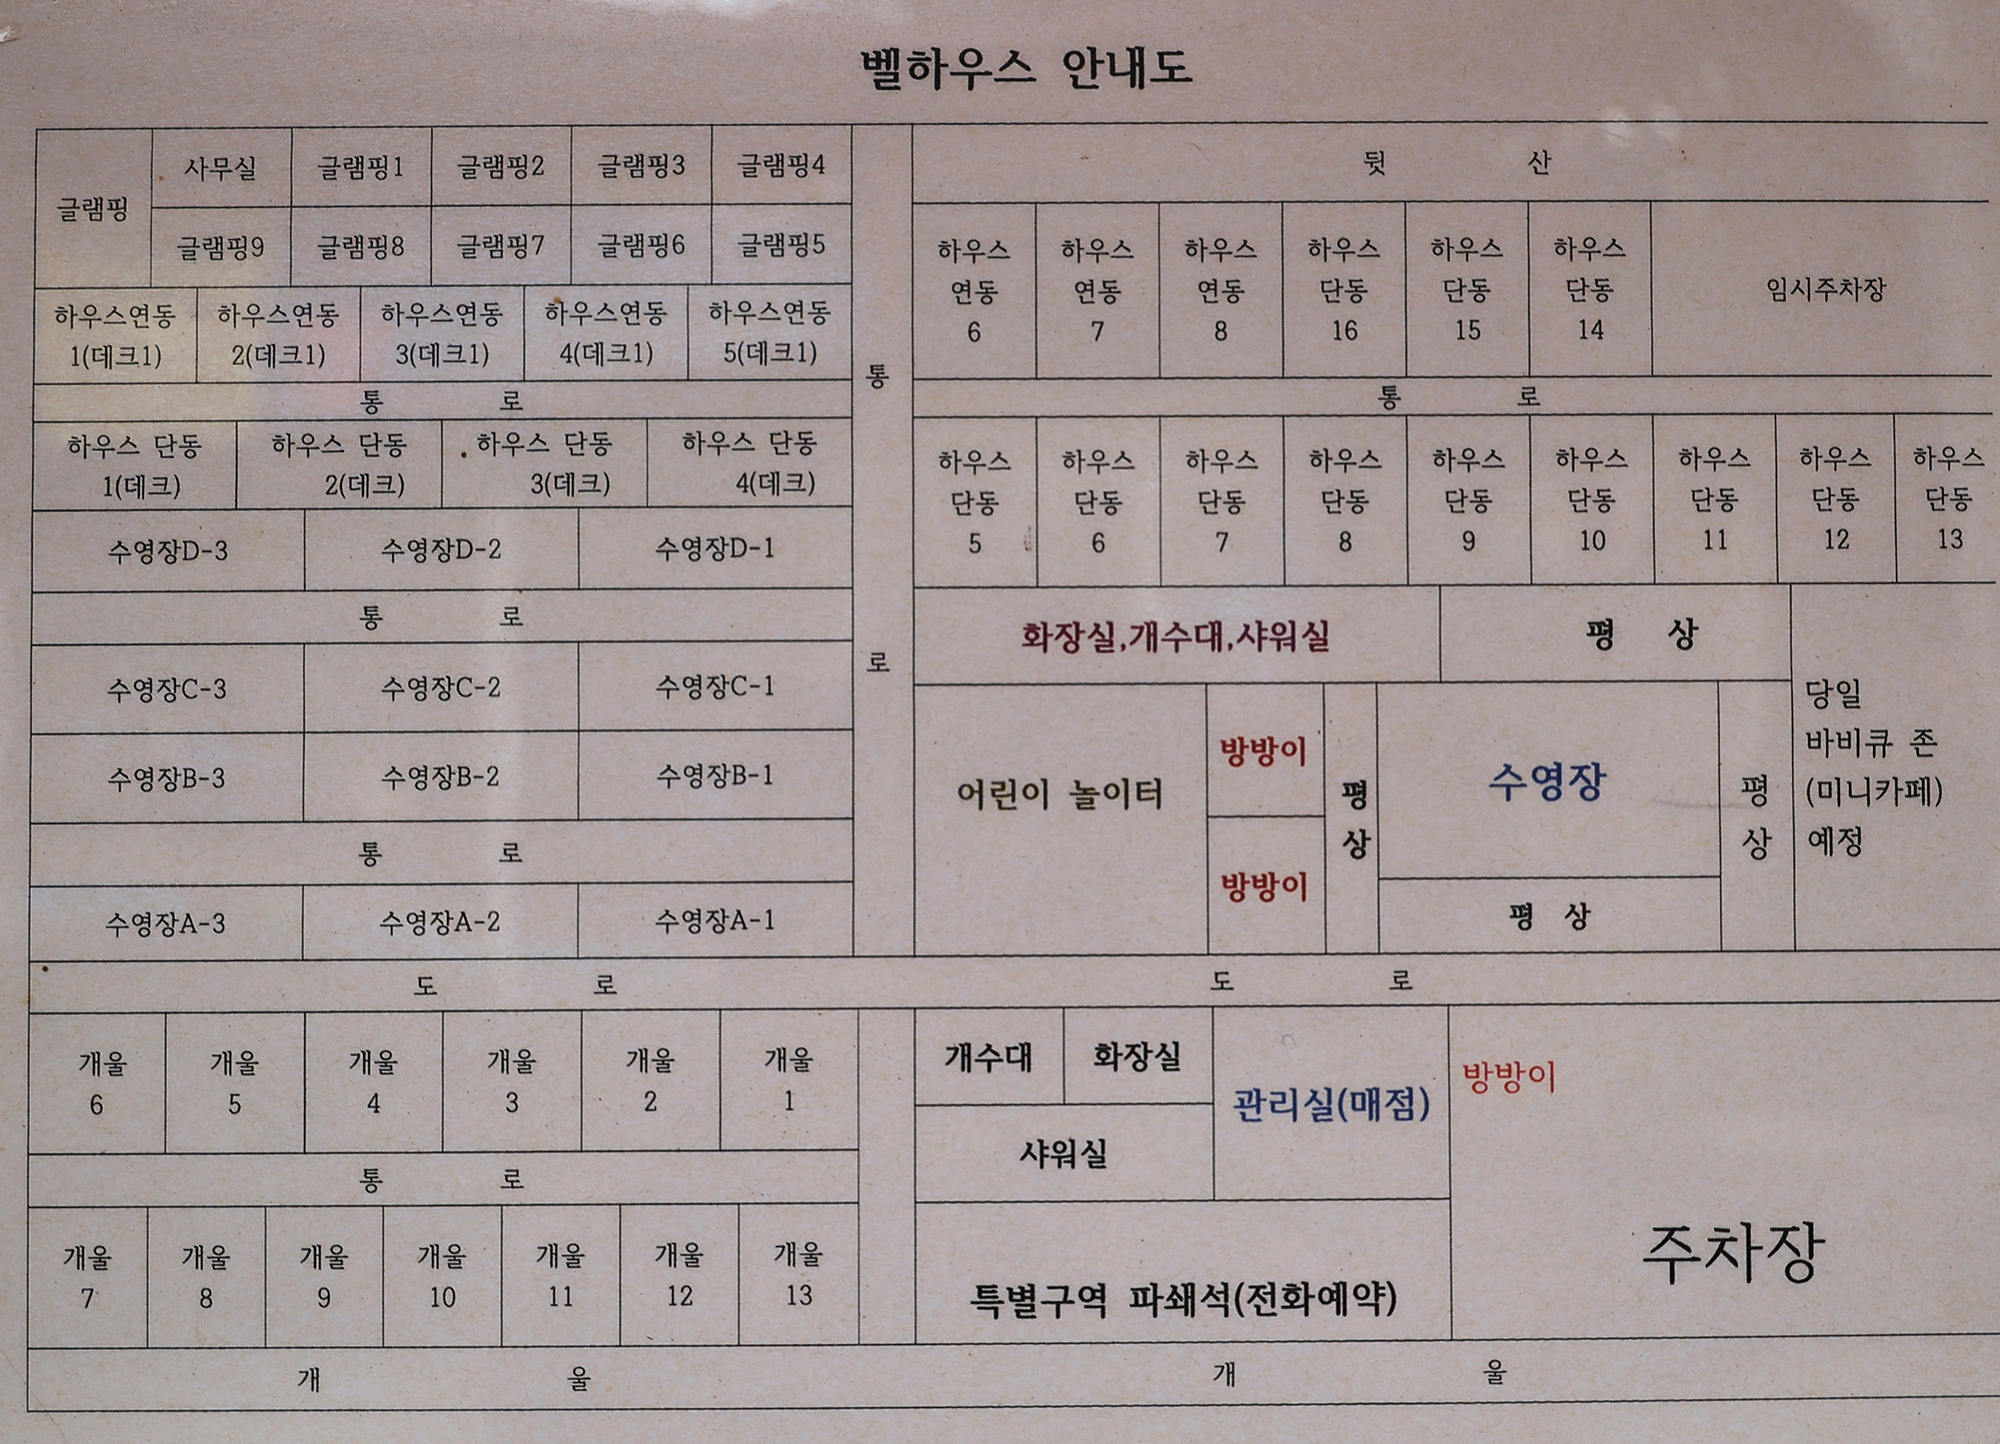 벨하우스 안내도
글램핑 사무실 글램핑1 글램핑2 글램핑3 글램핑4
글램핑9 글램핑8 글램핑7 글램핑6 글램핑5
하우스연동 하우스연동 하우스연동 하우스연동 하우스연동
1(데크1) 2(데크1) 3(데크1) 4(데크1) 5(데크1)
통 로
하우스 단동 하우스 단동 하우스 단동 하우스 단동
1(데크) 2(데크) 3(데크) 4(데크)
수영장D-3 수영장D-2 수영장D-1
통 로
수영장C-3 수영장C-2 수영장C-1
수영장B-3 수영장B-2 수영장B-1
통 로
수영장A-3 수영장A-2 수영장A-1
통
로
뒷 산
하우스 하우스 하우스 하우스 하우스 하우스
연동 연동 연동 단동 단동 단동 임시주차장
6 7 8 16 15 14
통 로
하우스 하우스 하우스 하우스 하우스 하우스 하우스 하우스 하우스
단동 단동 단동 단동 단동 단동 단동 단동 단동
5 6 7 8 9 10 11 12 13
화장실,개수대,샤워실 평 상
어린이 놀이터
방방이
방방이
평
상
수영장
평 상
평
상
당일
바비큐 존
(미니카페)
예정
도 로 도 로
개울 개울 개울 개울 개울 개울
6 5 4 3 2 1
통 로
개울 개울 개울 개울 개울 개울 개울
7 8 9 10 11 12 13
개수대 화장실
샤워실
관리실(매점)
방방이
특별구역 파쇄석(전화예약)
주차장
개 울 개 울